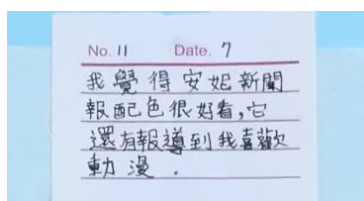 No. 11 Date. 7
我覺得安妮新聞
報配色很好看,它
還有報導到我喜歡
動漫.